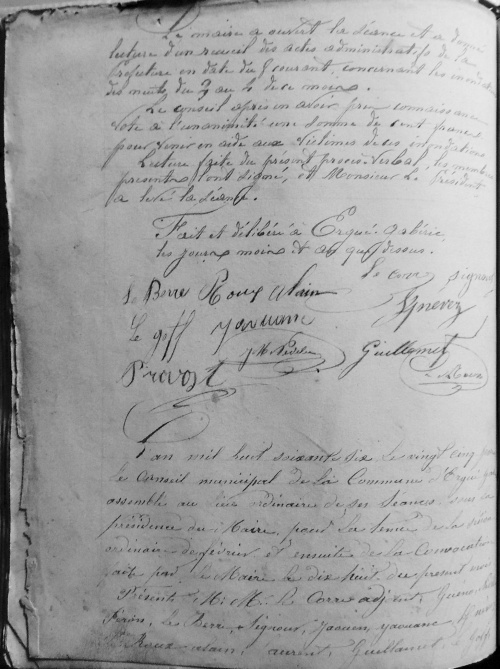 Le maire a ouvert la séance et a donné
lecture d'un recueil des actes administratifs de la
Préfecture en date du 8 courant, concernant les inonda
des ments du 2 au 4 de ce mois.
Le conseil après en avoir pris connaissance
vote à l'unanimité une somme de cent francs
pour venir en aide aux victimes de ses inondations
Lecture faite du présent procès-verbal, les membres
présents l'ont signé, et Monsieur le Président
a levé la séance.
Fait et délibéré à Ergué-Gabéric
les jour, mois et an que dessous.
Le Corre Signour
Le Berre Roux Alain
Le Goff Yaouanc
Guillamet
Provost
L'an mil huit soixante six le vingt cinq
le Conseil municipal de la Commune d'Ergué
assemblé au lieu ordinaire de ses séances sous la
présidence du Maire, pour la tenue de la session
ordinaire de février et ensuite de la Convocation
faite par le Maire le dix huit du présent mois
Présents M.M. le Corre adjoint,
le Berre, Signour, Yaouanc
Roux alain, Guillamet, le Goff